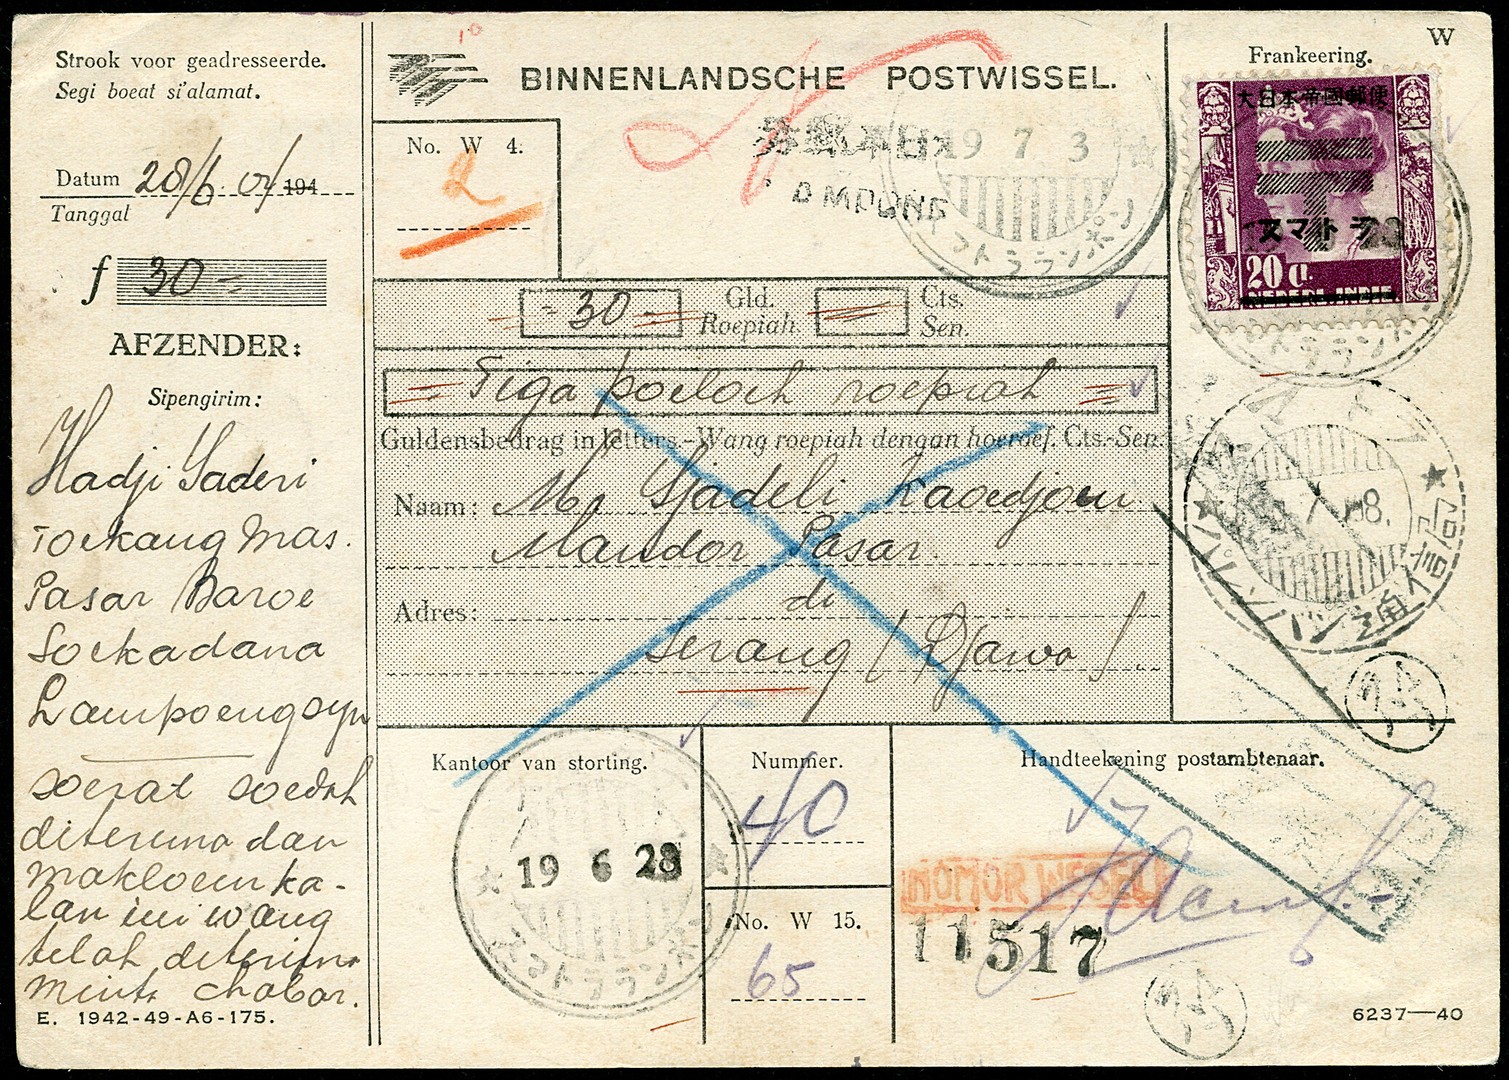 Strook voor geadresseerde.
Segi boeat si'alamat.
Datum 28/6 04/ 194
Tanggal
f 30 =
AFZENDER:
Sipengirim:
Hadji Saderi
Toekang Mas.
Pasar Baroe
Soekadana
Lampoeng
soerat soedah
diterima dan
makloem ka-
lan ini wang
telah diterima
minta chabar.
E. 1942-49-A6-175.
BINNENLANDSCHE POSTWISSEL.
No. W 4.
2
19 7 3
30 - Gld. Cts.
Roepiah Sen.
Tiga poeloeh roepiah
Guldensbedrag in letters.-Wang roepiah dengan hoeroef. Cts.-Sen.
Naam: Mr Sjadeli Kaoedjoen
Mandor Pasar.
Adres: di
Serang (Djawa)
W
Frankeering.
大日本帝國郵便
スマトラ
20 ct.
NEDERL. INDIE
Kantoor van storting.
19 6 28
Nummer.
40
No. W 15.
65
Handteekening postambtenaar.
NOMOR WESEL
11517
6237—40